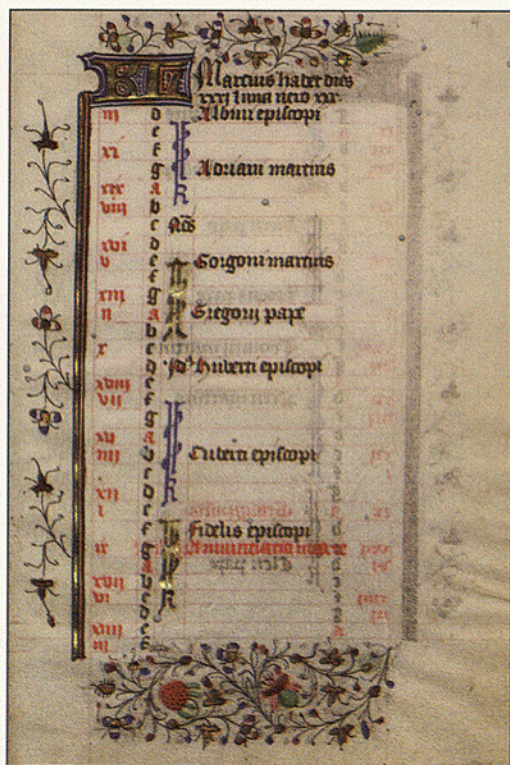 KL Marcius habet dies
xxxi luna vero xxx.
iii d Albini episcopi
e
xi f
g Adriani martiris
xix A
viii b
c Nōs
xvi d
v e Gorgoni martiris
f
xiii g
ii A Gregorii pape
b
x c
d Id' Huberti episcopi
xviii e
vii f
g
xv A
iiii b Cuberti episcopi
c
xii d
i e
f Fidelis episcopi
ix g Annunciatio marie
A
xvii b
vi c
d
xiiii e
iii f